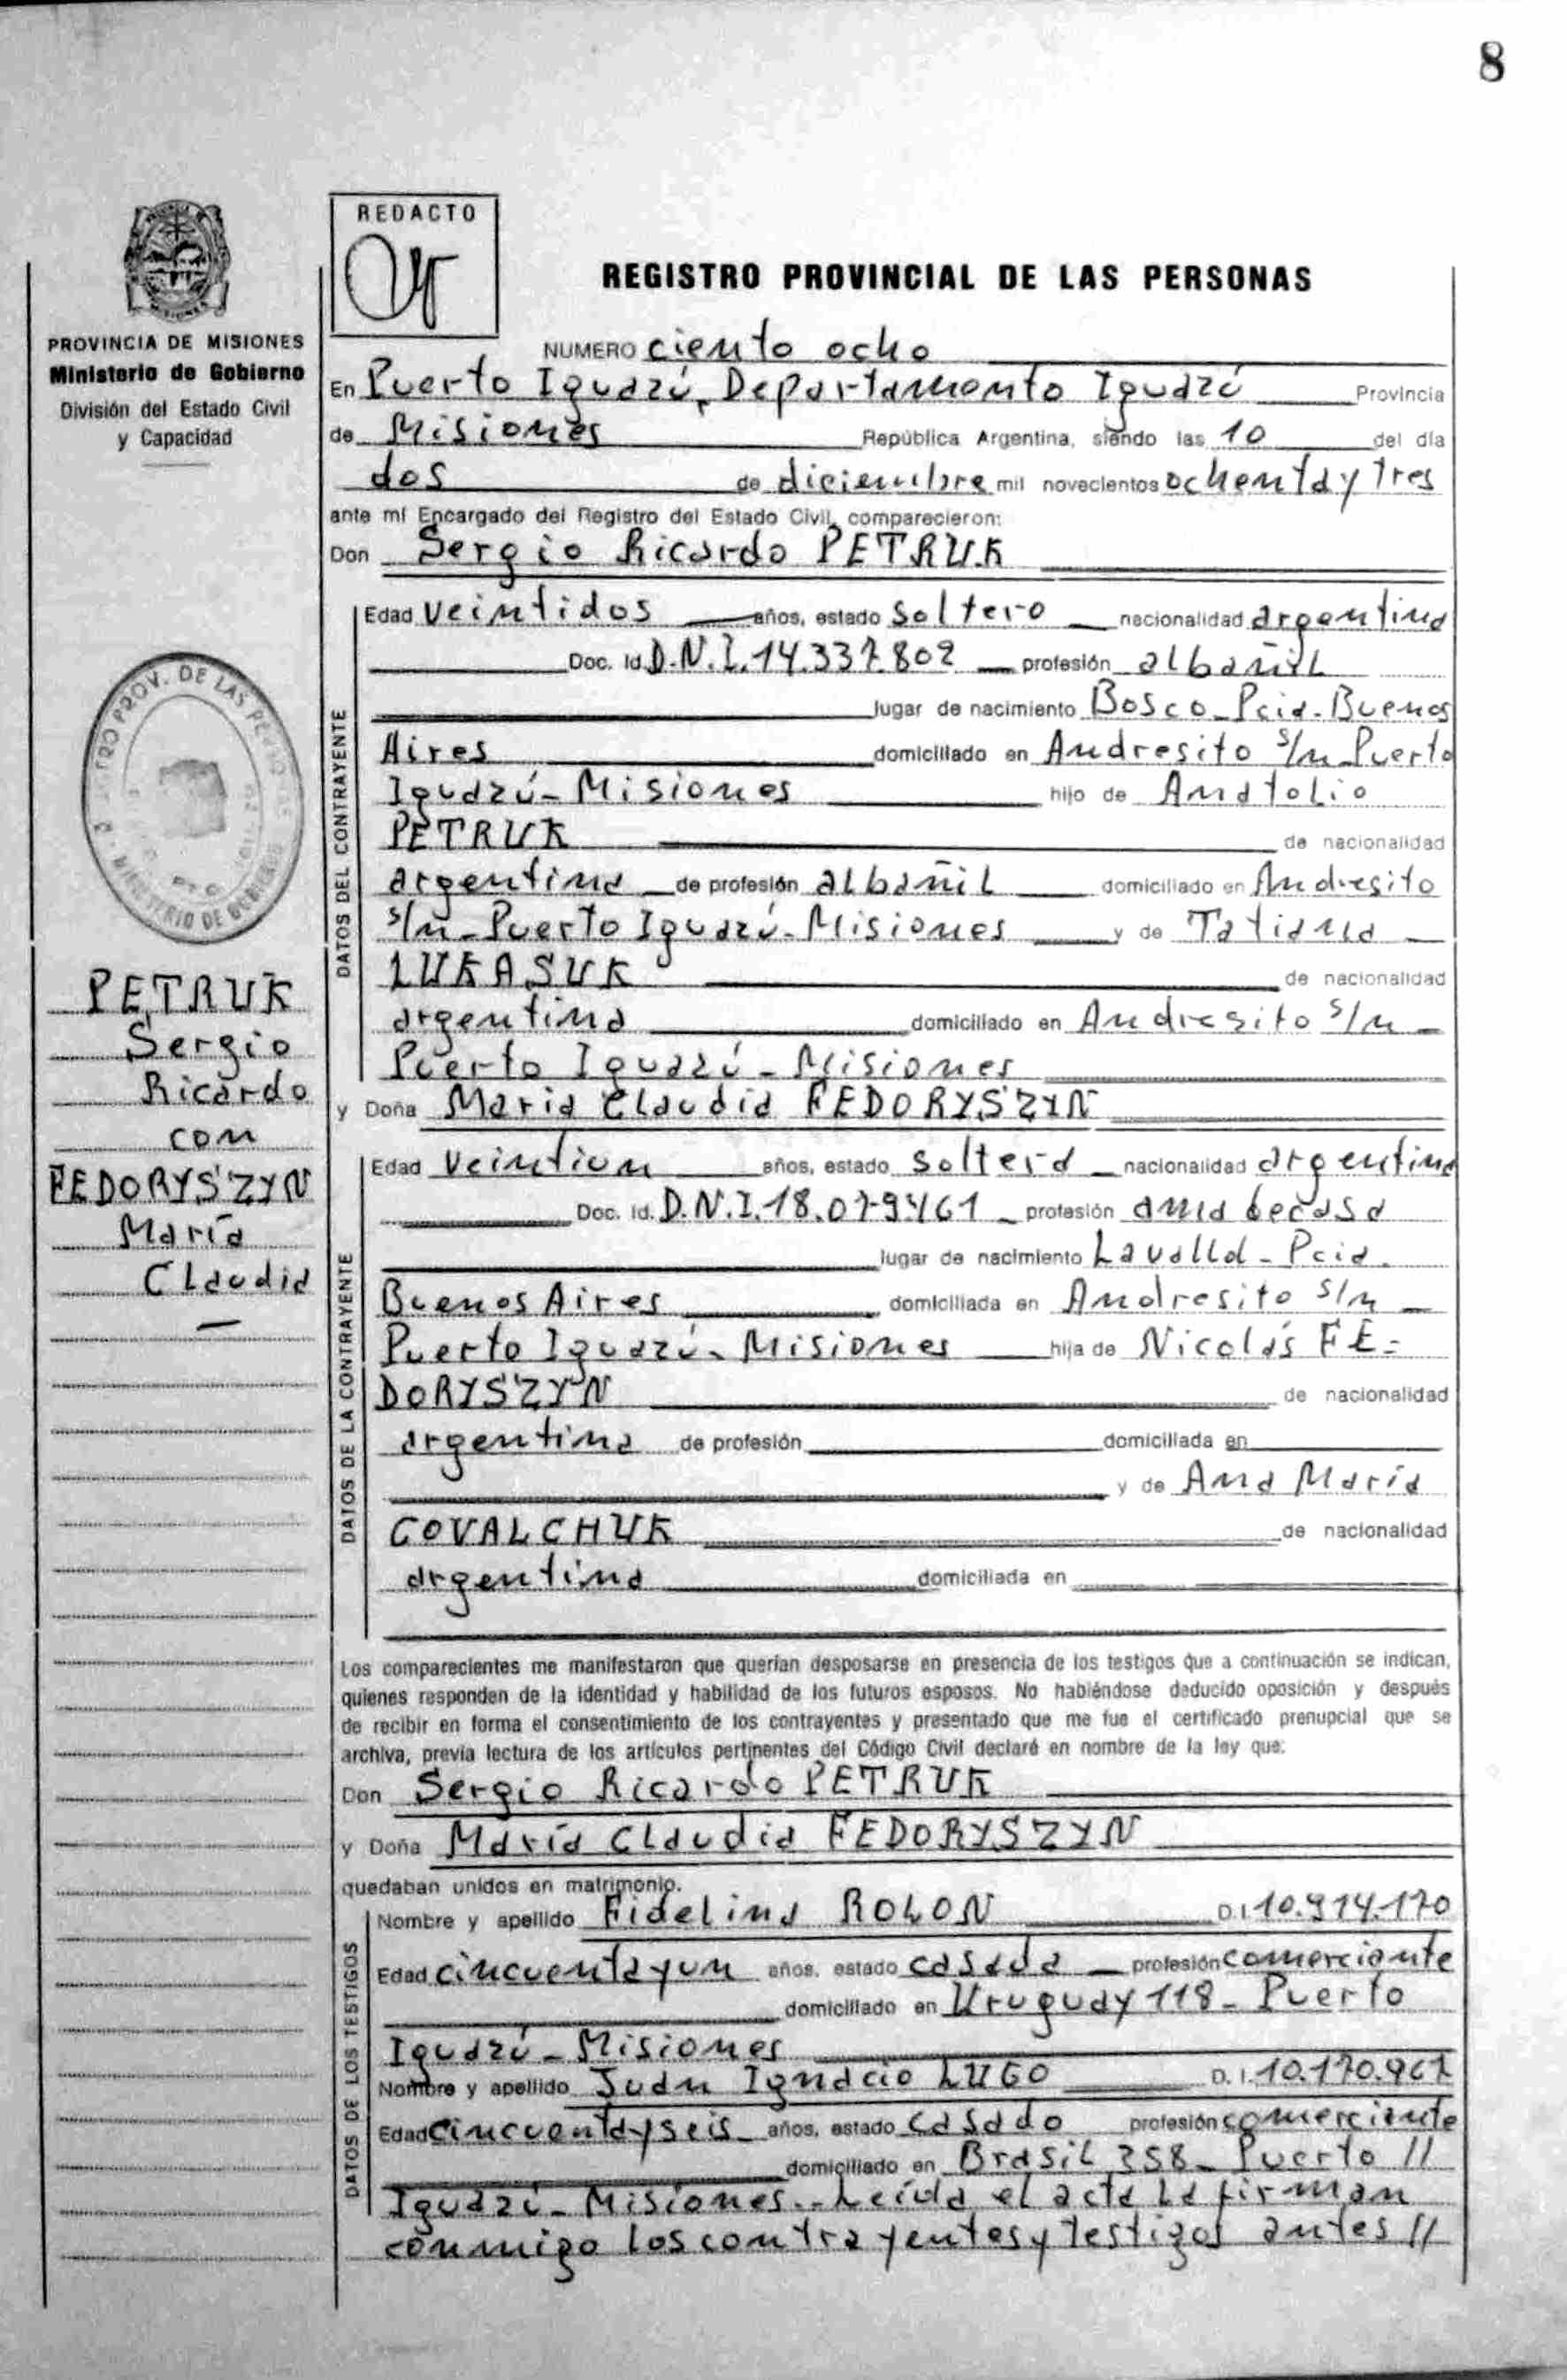 8
REDACTO
PROVINCIA DE MISIONES
Ministerio de Gobierno
División del Estado Civil
y Capacidad
PETRUK
Sergio
Ricardo
con
FEDORYSZYN
María
Claudia
REGISTRO PROVINCIAL DE LAS PERSONAS
NUMERO ciento ocho
En Puerto Iguazú, Departamento Iguazú Provincia
de Misiones República Argentina, siendo las 10 del día
dos de diciembre mil novecientos ochenta y tres
ante mí Encargado del Registro del Estado Civil, comparecieron:
Don Sergio Ricardo PETRUK
DATOS DEL CONTRAYENTE
Edad veintidos años, estado soltero nacionalidad argentina
Doc. Id. D.N.I. 14.337.802 profesión albañil
lugar de nacimiento Bosco Pcia. Buenos
Aires domiciliado en Andresito s/n Puerto
Iguazú - Misiones hijo de Anatolio
PETRUK de nacionalidad
argentina de profesión albañil domiciliado en Andresito
s/n - Puerto Iguazú - Misiones y de Tatiana
LUKASUK de nacionalidad
argentina domiciliado en Andresito s/n -
Puerto Iguazú - Misiones
y Doña María Claudia FEDORYSZYN
DATOS DE LA CONTRAYENTE
Edad veintiun años, estado soltera nacionalidad argentina
Doc. Id. D.N.I. 18.079.461 profesión ama de casa
lugar de nacimiento Lavalld - Pcia.
Buenos Aires domiciliada en Andresito s/n -
Puerto Iguazú - Misiones hija de Nicolás FE-
DORYSZYN de nacionalidad
argentina de profesión domiciliada en
y de Ana María
COVALCHUK de nacionalidad
argentina domiciliada en
Los comparecientes me manifestaron que querían desposarse en presencia de los testigos que a continuación se indican,
quienes responden de la identidad y habilidad de los futuros esposos. No habiéndose deducido oposición y después
de recibir en forma el consentimiento de los contrayentes y presentado que me fue el certificado prenupcial que se
archiva, previa lectura de los artículos pertinentes del Código Civil declaré en nombre de la ley que:
Don Sergio Ricardo PETRUK
y Doña María Claudia FEDORYSZYN
quedaban unidos en matrimonio.
DATOS DE LOS TESTIGOS
Nombre y apellido Fidelina ROLON D.I. 10.914.170
Edad cincuenta y un años, estado casada profesión comerciante
domiciliado en Uruguay 118 - Puerto
Iguazú - Misiones
Nombre y apellido Juan Ignacio LUGO D.I. 10.170.967
Edad cincuenta y seis años, estado casado profesión comerciante
domiciliado en Brasil 358 - Puerto //
Iguazú - Misiones.- Leída el acta la firman
conmigo los contrayentes y testigos antes //